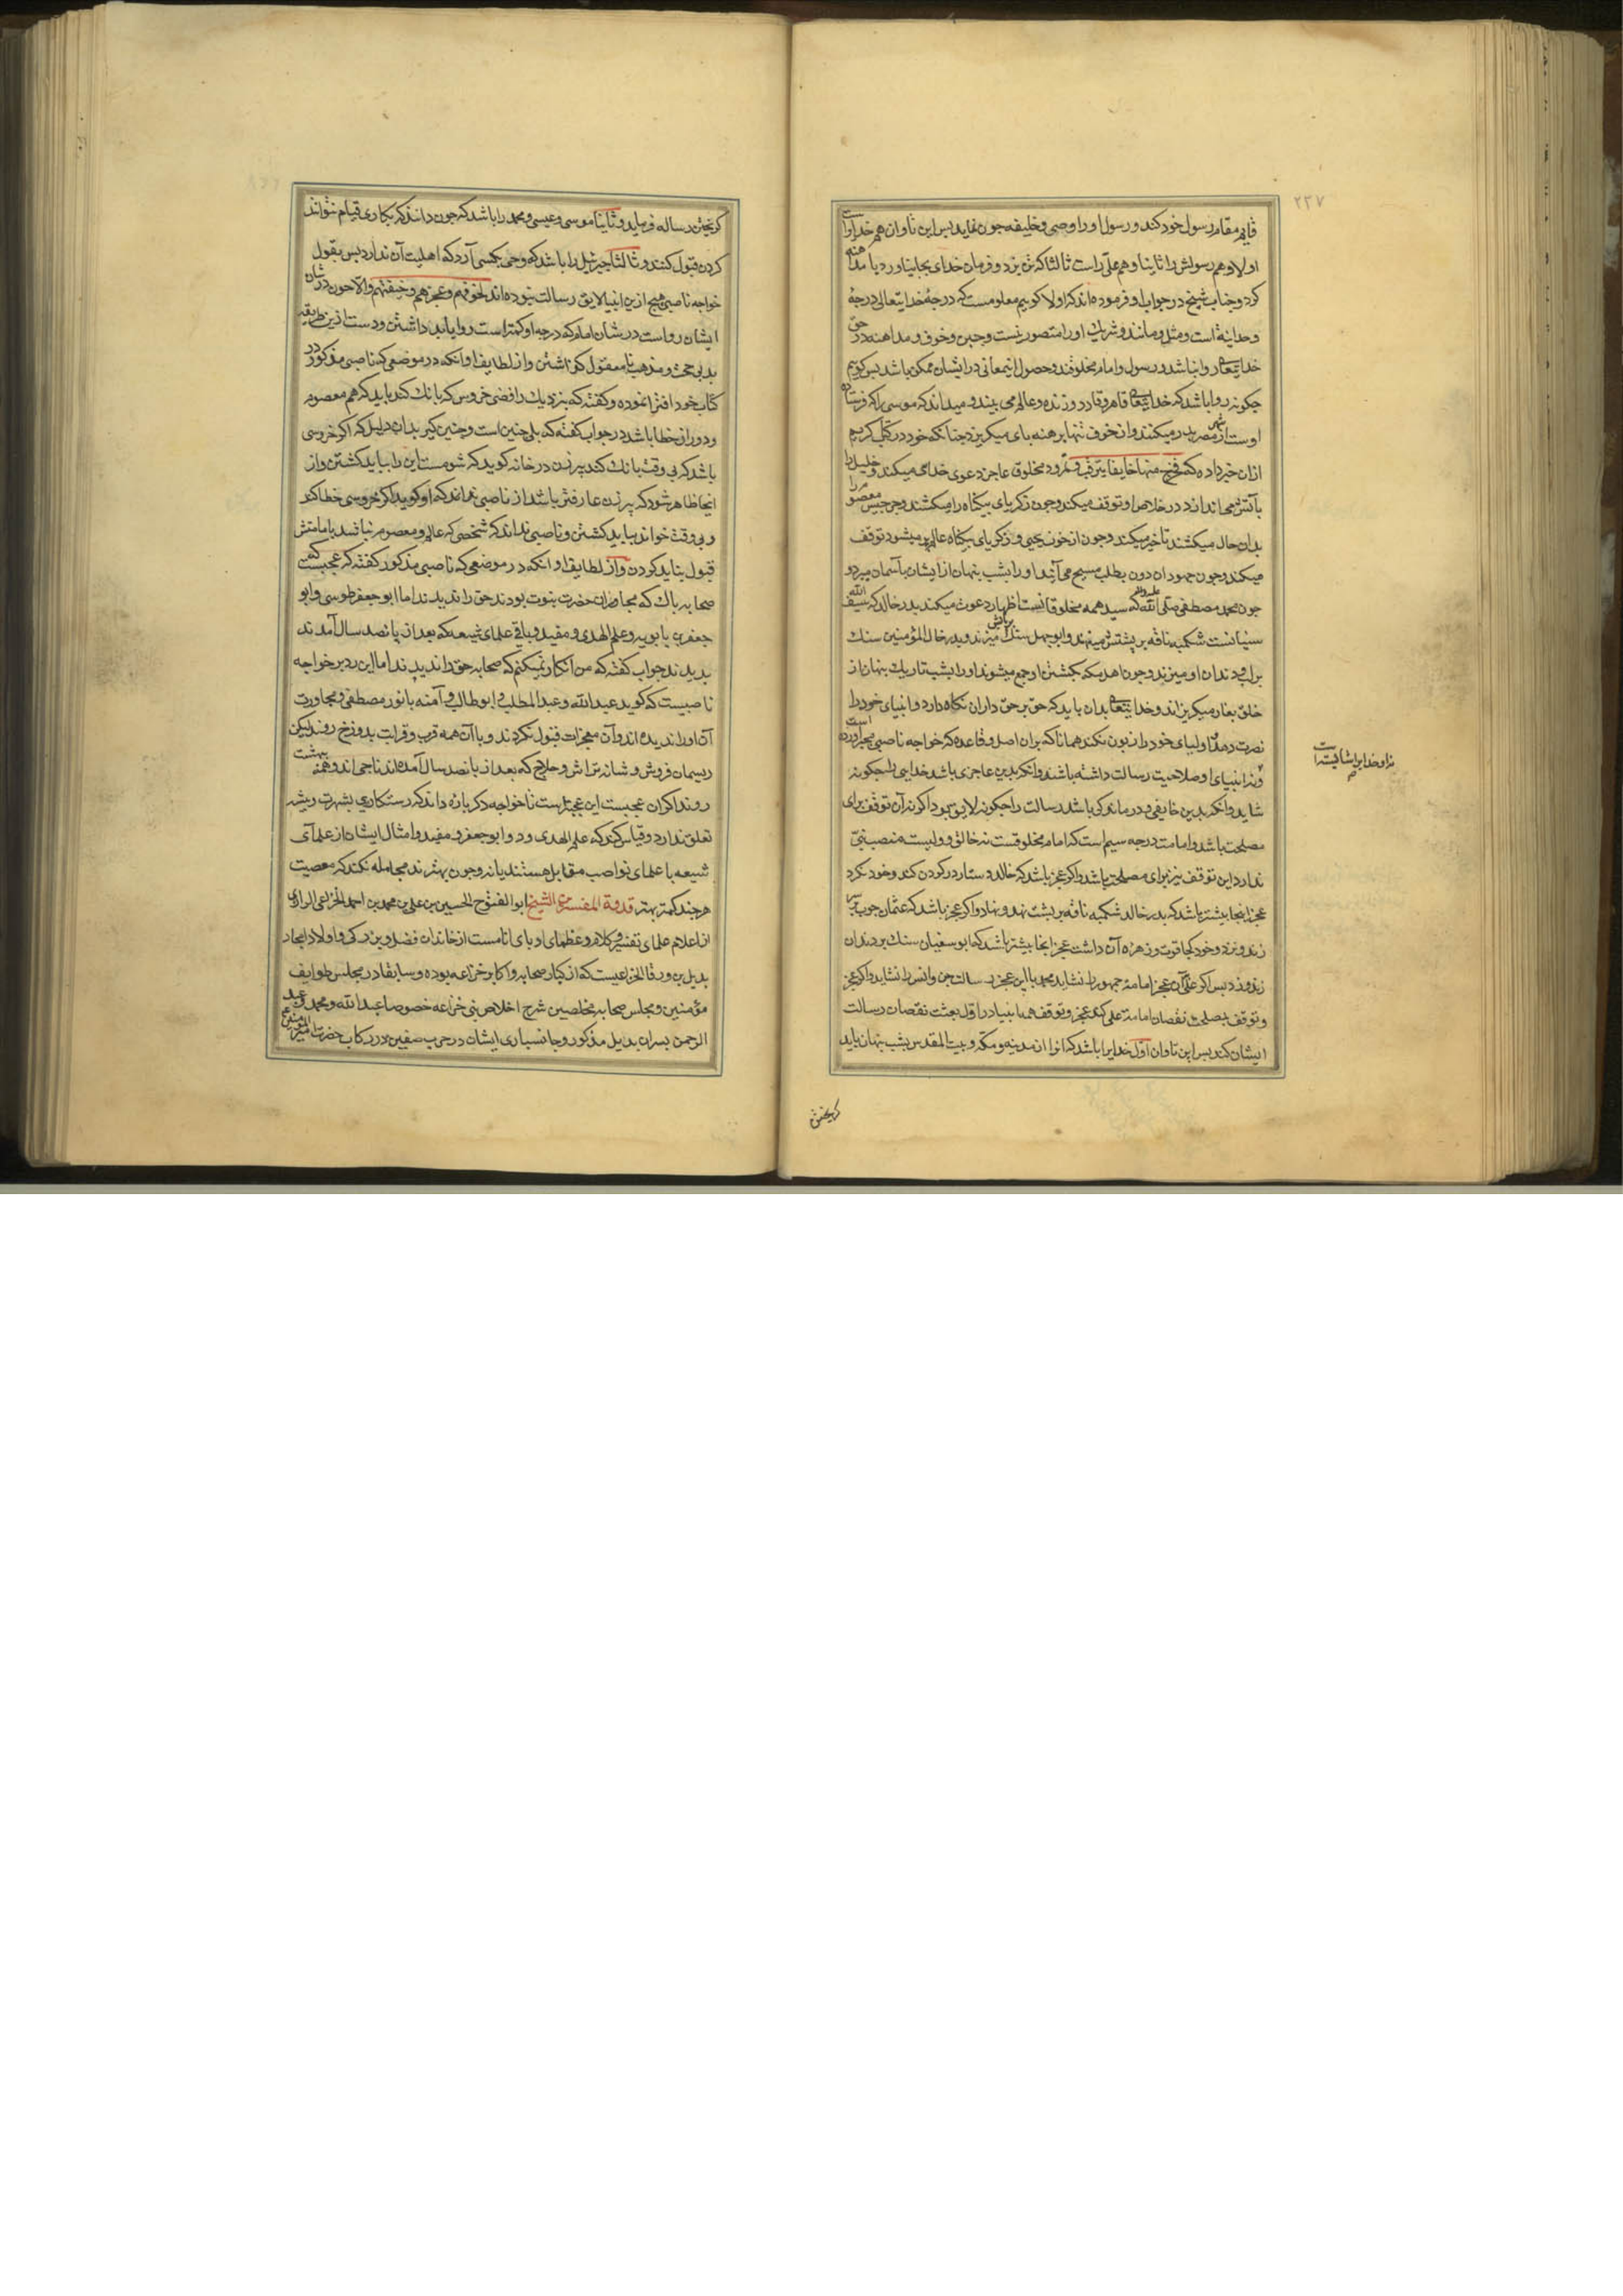 ۲۳۷
قایم مقام رسول خود کند و رسول او را وصی و خلیفه چون نماید پس این تاوان هم خدایراست
اولا و هم رسولش را ثانیا و هم علی راست ثالثا که نزد و فرمان خدای بجا نیاورد یا مداهنه
کرد و جناب شیخ در جواب او فرموده اند که اولا کوییم معلومست که درجهٔ خدایتعالی درجهٔ
وحدانیة است و مثل و مانند و شریک او را متصور نیست و جبن و خوف و مداهنه در حق
خدایتعا روا نباشد و رسول و امام مخلوقند و حصول اینمعانی در ایشان ممکن باشد پس کوییم
چکونه روا باشد که خدایتعا قاهر و قادر و زنده و عالم می بیند و میداند که موسی را که فرستاده
اوست از شهر مصر بدر میکنند و از خوف تنها برهنه پای میکریزد چنانکه خود در کتاب کریم
ازان خبر داده که فخرج منها خایفا یترقب و نمرود مخلوق عاجز دعوی خدایی میکند و خلیل را
بآتش می اندازد در خلاص او توقف میکند و چون زکریای بیکناه را میکشند و جرجیس معصوم را
بدان حال میکشند تاخیر میکند و چون از خون یحیی و زکریای بیکناه عالم پر میشود توقف
میکند و چون جهودان دون بطلب مسیح می آیند او را بشب پنهان از ایشان بآسمان میبرد و
چون محمد مصطفی صلی الله علیه و آله که سید همه مخلوقانست اظهار دعوت میکند پدر خالد که سیف الله
سنیانست شکمبه ناقه بر پشتش مینهد و ابو جهل سنک بر پایش میزند و پدر خال المؤمنین سنک
بر لب و دندان او میزند و چون اهل مکه بکشتن او جمع میشوند او را بشب تاریک پنهان از
خلق بغار میکریزاند و خدایتعا بدان باید که حق بر حق داران نکاه دارد و انبیای خود را
نصرت دهد و اولیای خود را زبون نکند همانا که بران اصل و قاعده که خواجه ناصبی مجبر آورده است
و نه انبیای او صلاحیت رسالت داشته باشند و آنکه بدین عاجزی باشد خدایی را چکونه
نه او خدایی را شایسته است
شاید و آنکه بدین خایفی و درماندکی باشد رسالت را چکونه لایق بود اکر نه آن توقف برای
مصلحت باشد و امامت درجه سیم است که امام مخلوقست نه خالق و ولیست منصب نبی
ندارد این توقف نیز برای مصلحت باشد و اکر عجز باشد که خالد دستار در کردن کند و خود نکرد
عجز اینجا بیشتر باشد که پدر خالد شکمبه ناقه بر پشت نهد و نهاد و اکر عجز باشد که عثمان چوب بر سر
زند و نزد و خود کجا قوت و زهره آن داشت عجز اینجا بیشتر باشد که ابو سفیان سنک بر دندان
زند و زد پس اکر علی آن عجز امامة جمهور را نشاید محمد با این عجز رسالت جن و انس را نشاید و اکر عجز
و توقف بمصلحت نقصان امامة علی کند عجز و توقف همه انبیا در اول بعثت نقصان رسالت
ایشان کند پس این تاوان اول خدایرا باشد که او را از مدینه و مکه و بیت المقدس بشب پنهان باید
کریختن
کریختن رساله فرماید و ثانیا موسی و عیسی و محمد را باشد که چون دانند که بکاری قیام نتوانند
کردن قبول کنند و ثالثا جبرئیل را باشد که وحی بکسی آرد که اهلیت آن ندارد پس بقول
خواجه ناصبی هیچ ازین انبیا لایق رسالت نبوده اند لخوفهم و عجزهم و خیفتهم و الا چون در شان
ایشان رواست در شان امام که درجه او کمتر است روا باید داشتن و دست ازین طریقه
بد بی حجت و مذهب نامعقول کوتاشتن و از لطایف او آنکه در موضعی که ناصبی مذکور در
کتاب خود افترا نموده و کفته که بنزدیک رافضی خروس که بانک کند باید که هم معصوم
و دور از خطا باشد در جواب کفته که بلی چنین است و چنین کیر بدان دلیل که اکر خروسی
باشد که بی وقت بانک کند پیر زن در خانه کوید که شومست این را بباید کشتن و از
اینجا ظاهر شود که پیر زن عارفتر باشد از ناصبی نداند که او کوید اکر خروسی خطا کند
و بی وقت خواند بباید کشتن و ناصبی نداند که شخصی که عالم و معصوم نباشد بامامتش
قبول نباید کردن و از لطایف او آنکه در موضعی که ناصبی مذکور کفته که عجبست که
صحابه پاک که مجاوران حضرت نبوت بودند حق را ندیدند اما ابو جعفر طوسی و ابو
جعفر بابویه و علم الهدی و مفید و باقی علمای شیعه که بعد از پانصد سال آمدند
بدیدند جواب کفته که من انکار نمیکنم که صحابه حق را ندیدند اما این رد بر خواجه
ناصبیست که کوید عبد الله و عبد المطلب و ابو طالب و آمنه با نور مصطفی و مجاورت
آن او را ندیده اند و آن معجزات قبول نکردند و با آن همه قرب و قرابت بدوزخ روند لیکن
ریسمان فروش و شانه تراش و حلاج که بعد از پانصد سال آمده اند ناجی اند و همه ببهشت
روند اکر آن عجبست این عجبترست تا خواجه دکرباره داند که رستکاری بشهرت و ریشه
تعلق ندارد و قیاس کند که علم الهدی و دو ابو جعفر و مفید و امثال ایشان از علمای
شیعه با علمای نواصب مقابل هستند یا نه و چون بهترند مجامله نکند که معصیت
هرچند کمتر بهتر قدوة المفسرین الشیخ ابو الفتوح الحسین بن علی بن محمد بن احمد الخزاعی الرازی
از اعلام علمای تفسیر و کلام و عظمای ادبای انامست از خاندان فضل و بزرکی و اولاد امجاد
بدیل بن ورقا الخزاعیست که از کبار صحابه و اکابر خزاعه بوده و سابقا در مجلس طوایف
مؤمنین و مجلس صحابه مخلصین شرح اخلاص بنی خزاعه خصوصا عبد الله و محمد و عبد
الرحمن پسران بدیل مذکور و جانسپاری ایشان در حرب صفین در رکاب حضرت امیر المؤمنین ع